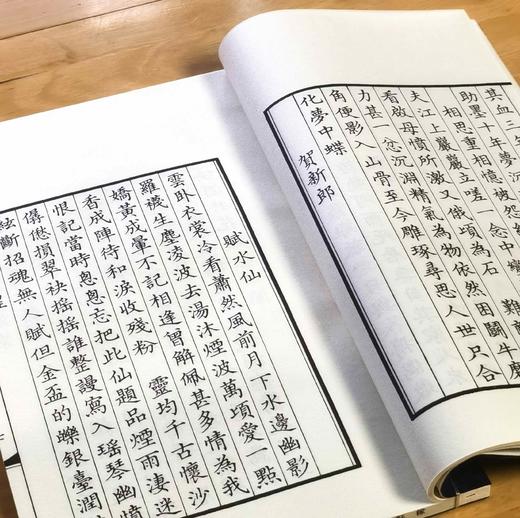 其血三年
助墨十年夢
相思重相憶被怨
夫江上巖巖立嗟一念中
看啟母憤所激又俄頃為石 難
力甚一忿沉淵精氣為物依然困鬭牛磨
角便影入山骨至今雕琢尋思人世只合
化夢中蝶
賀新郎
賦水仙
雲卧衣裳冷看蕭然風前月下水邊幽影
羅襪生塵凌波去湯沐煙波萬頃愛一點
嬌黃成暈不記相逢曾解佩甚多情為我
香成陣待和淚收殘粉 靈均千古懷沙
恨記當時怱怱忘把此仙題品煙雨淒迷
僝僽損翠袂搖搖誰整謾寫入瑤琴幽憤
絃斷招魂無人賦但金盃的皪銀臺潤